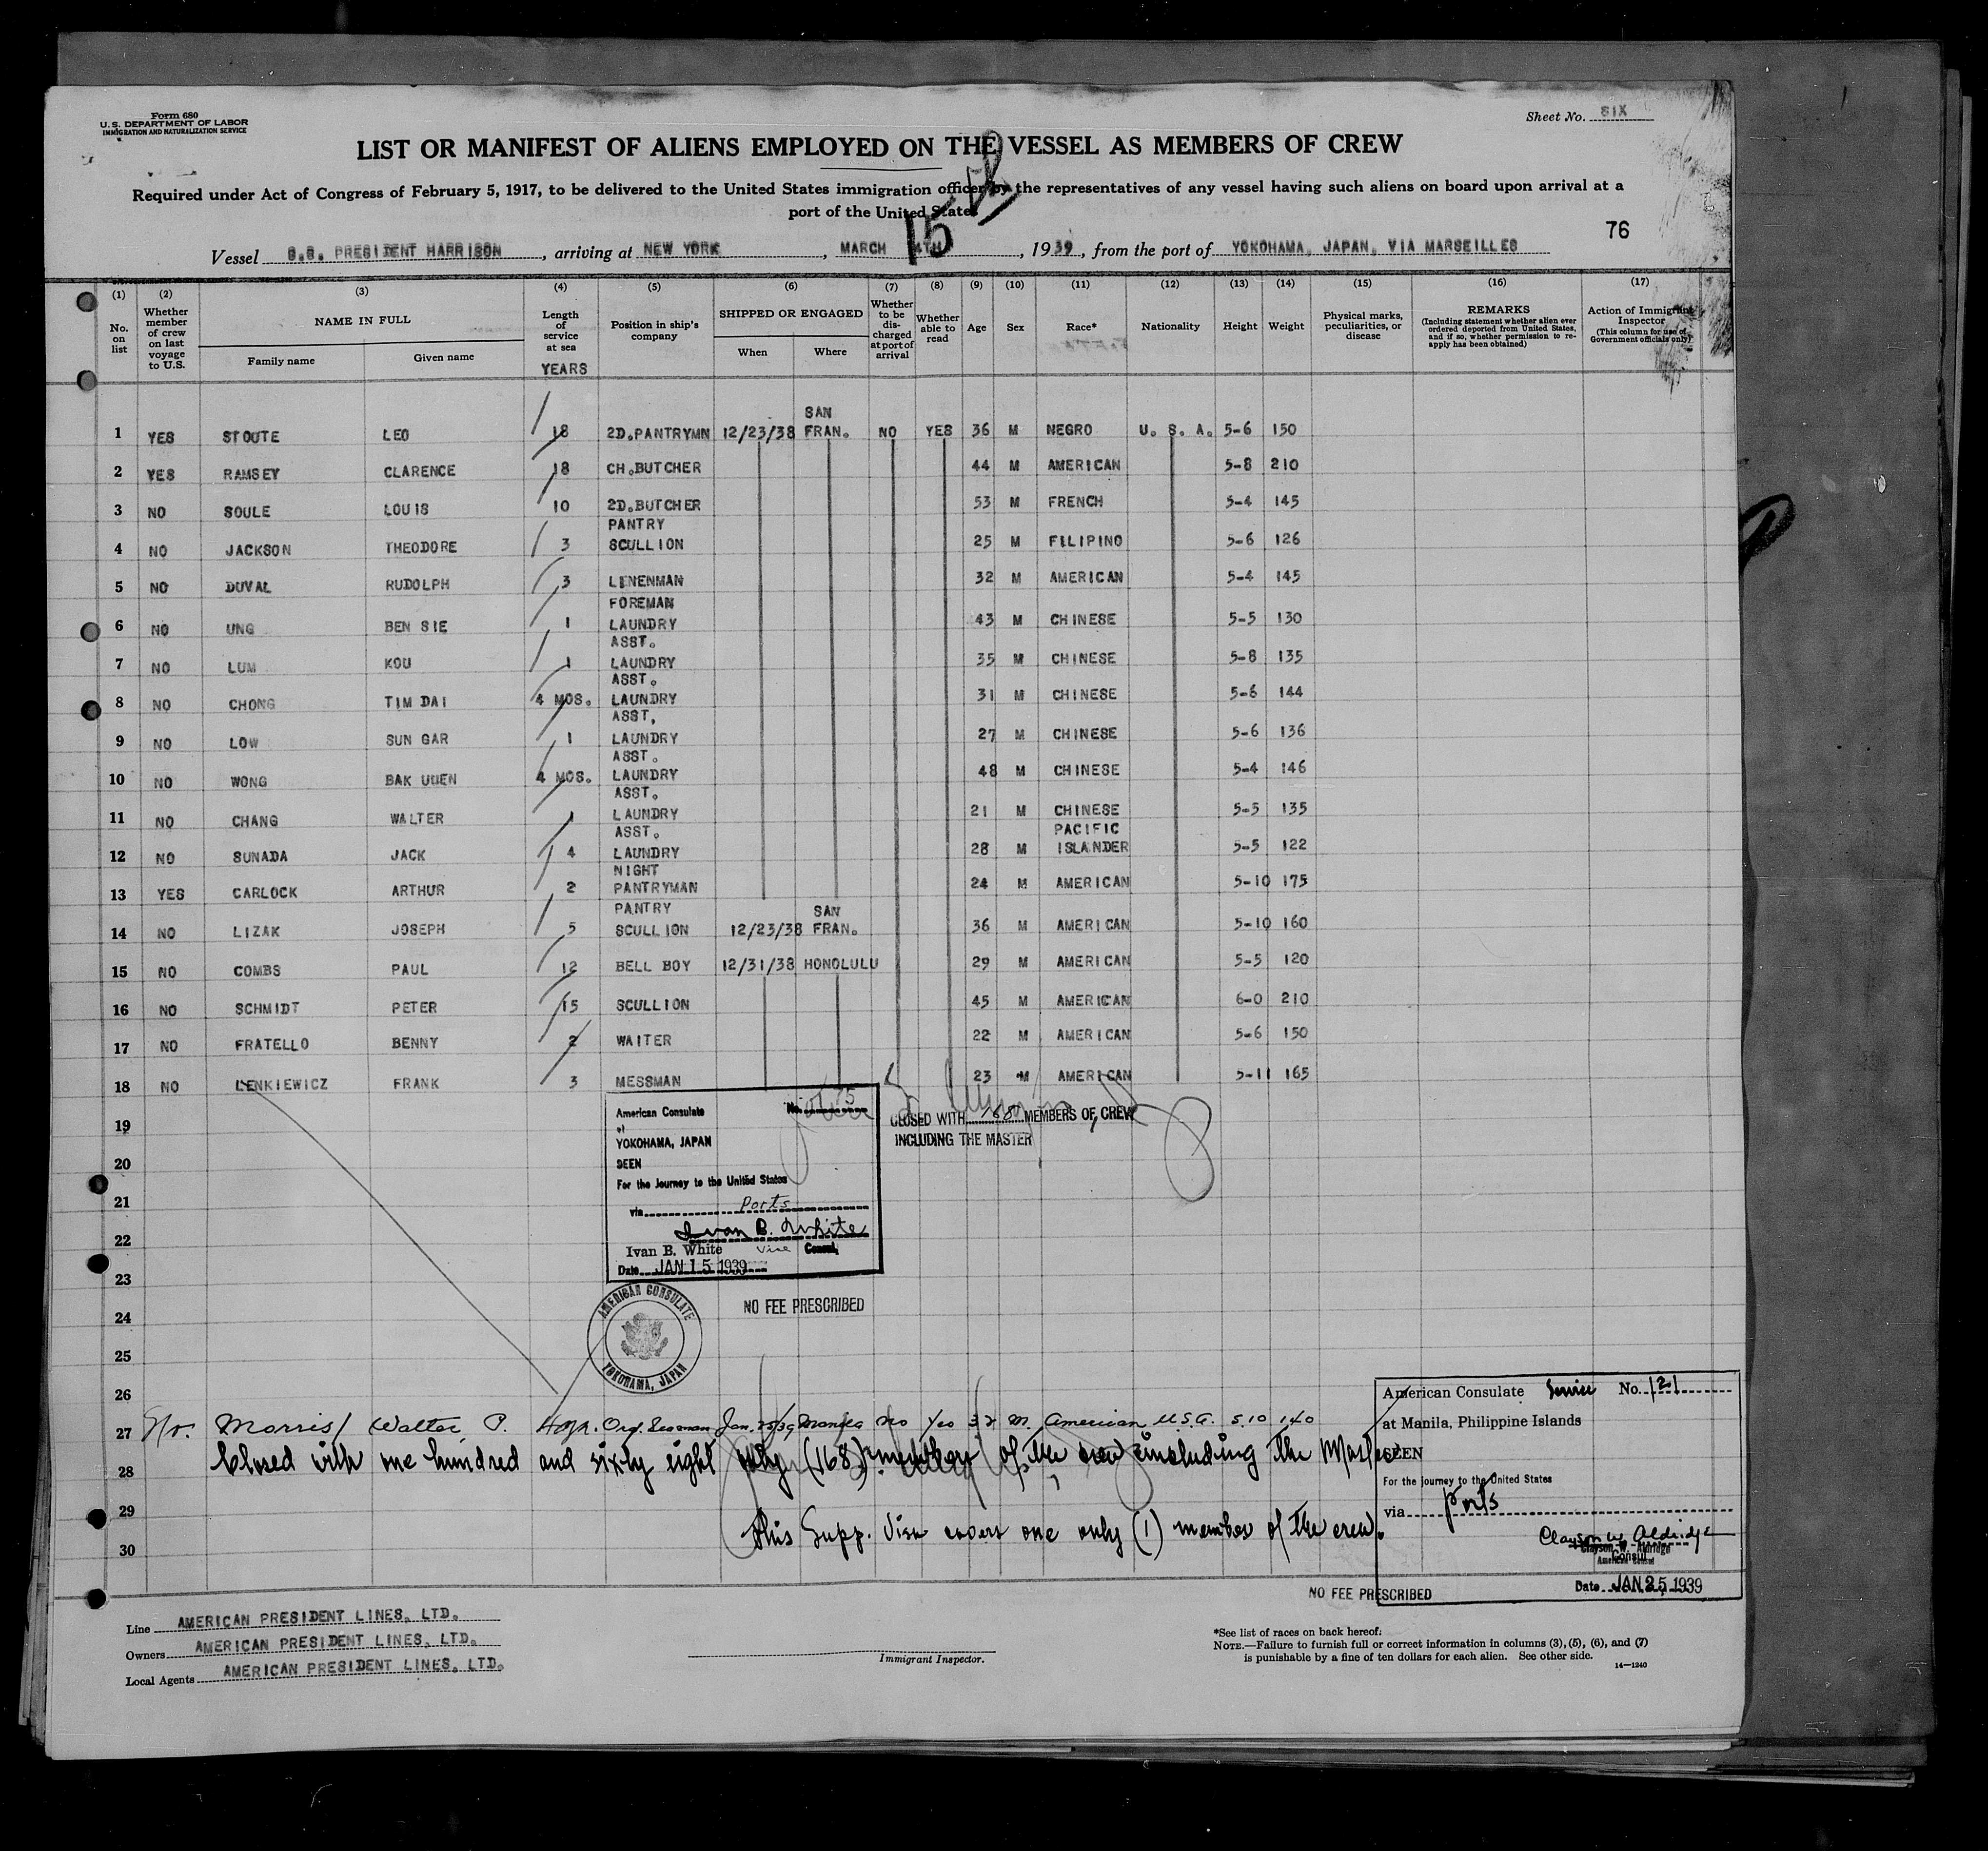 Form 680
U. S. DEPARTMENT OF LABOR
IMMIGRATION AND NATURALIZATION SERVICE
Sheet No. SIX
LIST OR MANIFEST OF ALIENS EMPLOYED ON THE VESSEL AS MEMBERS OF CREW
Required under Act of Congress of February 5, 1917, to be delivered to the United States immigration officer by the representatives of any vessel having such aliens on board upon arrival at a
port of the United States
15
76
Vessel S.S. PRESIDENT HARRISON, arriving at NEW YORK, MARCH 4TH, 1939, from the port of YOKOHAMA, JAPAN, VIA MARSEILLES
(1) (2) (3) (4) (5) (6) (7) (8) (9) (10) (11) (12) (13) (14) (15) (16) (17)
No. on list
Whether member of crew on last voyage to U.S.
NAME IN FULL
Family name
Given name
Length of service at sea
YEARS
Position in ship's company
SHIPPED OR ENGAGED
When
Where
Whether to be discharged at port of arrival
Whether able to read
Age
Sex
Race*
Nationality
Height
Weight
Physical marks, peculiarities, or disease
REMARKS
(Including statement whether alien ever ordered deported from United States, and if so, whether permission to reapply has been obtained)
Action of Immigrant Inspector
(This column for use of Government officials only)
1 YES STOUTE LEO 18 2D.PANTRYMN 12/23/38 SAN FRAN. NO YES 36 M NEGRO U. S. A. 5-6 150
2 YES RAMSEY CLARENCE 18 CH.BUTCHER 44 M AMERICAN 5-8 210
3 NO SOULE LOUIS 10 2D.BUTCHER 53 M FRENCH 5-4 145
4 NO JACKSON THEODORE 3 PANTRY SCULLION 25 M FILIPINO 5-6 126
5 NO DUVAL RUDOLPH 3 LINENMAN 32 M AMERICAN 5-4 145
6 NO UNG BEN SIE 1 FOREMAN LAUNDRY 43 M CHINESE 5-5 130
7 NO LUM KOU 1 ASST. LAUNDRY 35 M CHINESE 5-8 135
8 NO CHONG TIM DAI 4 MOS. ASST. LAUNDRY 31 M CHINESE 5-6 144
9 NO LOW SUN GAR 1 ASST. LAUNDRY 27 M CHINESE 5-6 136
10 NO WONG BAK UUEN 4 MOS. ASST. LAUNDRY 48 M CHINESE 5-4 146
11 NO CHANG WALTER 1 ASST. LAUNDRY 21 M CHINESE 5-5 135
12 NO SUNADA JACK 4 ASST. LAUNDRY 28 M PACIFIC ISLANDER 5-5 122
13 YES CARLOCK ARTHUR 2 NIGHT PANTRYMAN 24 M AMERICAN 5-10 175
14 NO LIZAK JOSEPH 5 PANTRY SCULLION 12/23/38 SAN FRAN. 36 M AMERICAN 5-10 160
15 NO COMBS PAUL 12 BELL BOY 12/31/38 HONOLULU 29 M AMERICAN 5-5 120
16 NO SCHMIDT PETER 15 SCULLION 45 M AMERICAN 6-0 210
17 NO FRATELLO BENNY 2 WAITER 22 M AMERICAN 5-6 150
18 NO LENKIEWICZ FRANK 3 MESSMAN 23 M AMERICAN 5-11 165
19
20
21
22
23
24
25
26
American Consulate No. 75
at
YOKOHAMA, JAPAN
SEEN
For the Journey to the United States
via Ports
Ivan B. White
Ivan B. White Vice Consul
Date JAN 15 1939
CLOSED WITH 168 MEMBERS OF CREW
INCLUDING THE MASTER
NO FEE PRESCRIBED
AMERICAN CONSULATE
YOKOHAMA, JAPAN
27 No. Morris Walter P. Ord. Seaman Jan. 25/39 Manila No Yes 32 M. American U.S.A. 5.10 140
28 Closed with one hundred and sixty eight only (168) members of the crew including the Master
29 This Supp. Visa covers one only (1) member of the crew.
30
American Consulate Service No. 121
at Manila, Philippine Islands
SEEN
For the journey to the United States
via ports
Clayson W. Aldridge
Clayson W. Aldridge
American Consul
Consul
Date JAN 25 1939
NO FEE PRESCRIBED
Line AMERICAN PRESIDENT LINES, LTD.
Owners AMERICAN PRESIDENT LINES, LTD.
Local Agents AMERICAN PRESIDENT LINES, LTD.
Immigrant Inspector.
*See list of races on back hereof.
NOTE.—Failure to furnish full or correct information in columns (3), (5), (6), and (7)
is punishable by a fine of ten dollars for each alien. See other side.
14—1240